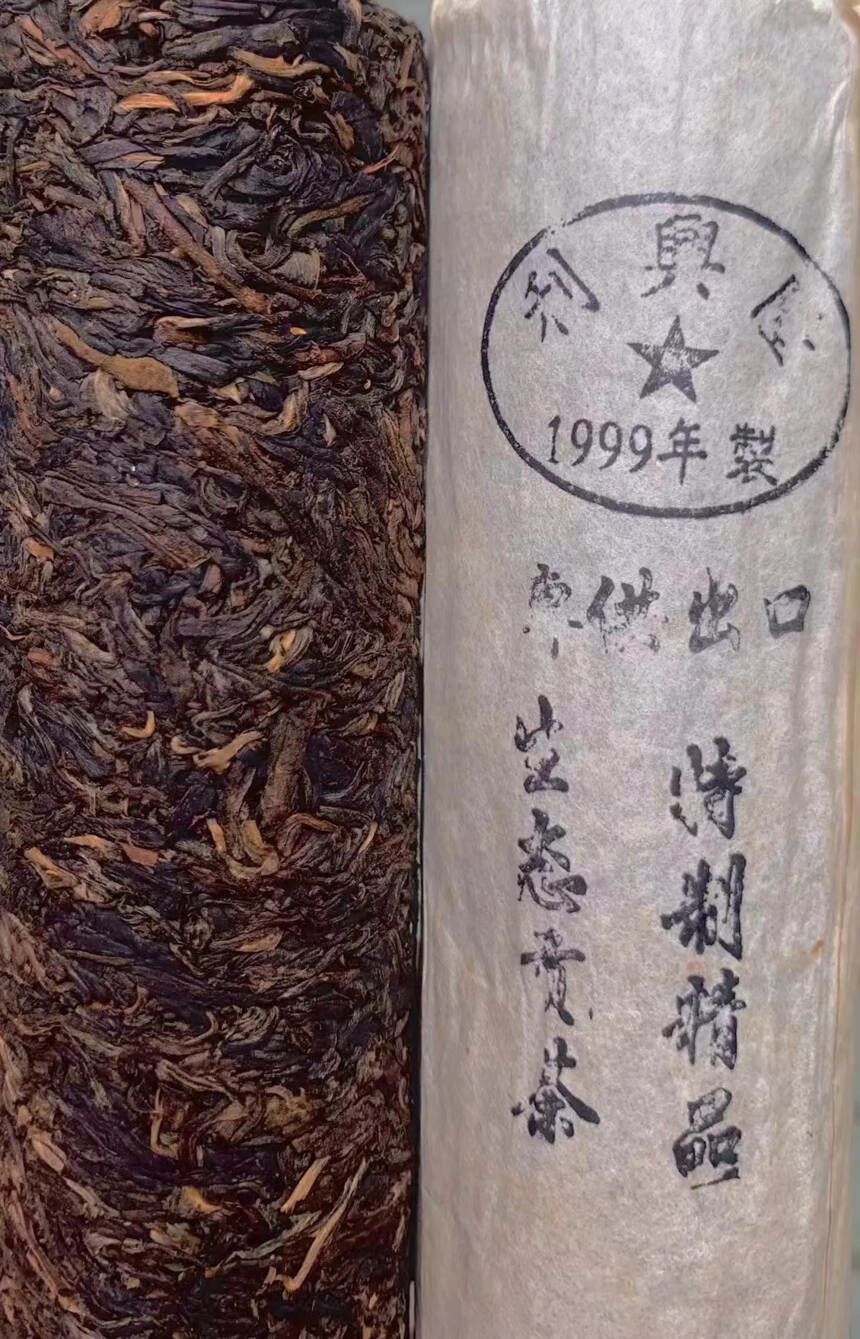 利興
1999年製
供出口
特制精品
生态贡茶